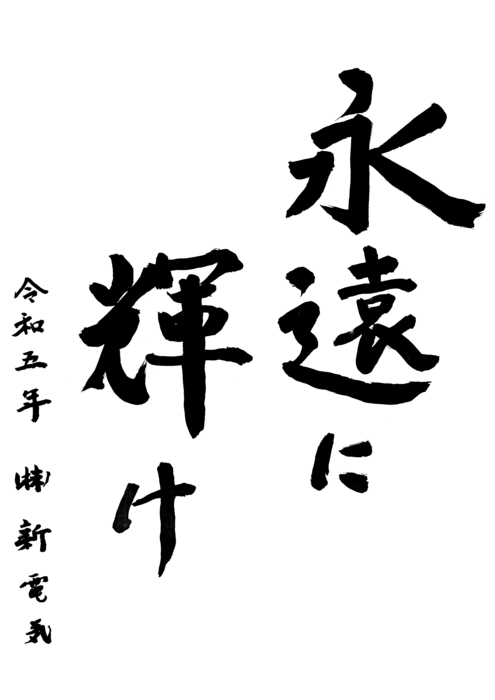 永遠に
輝け
令和五年 ㈱新電気